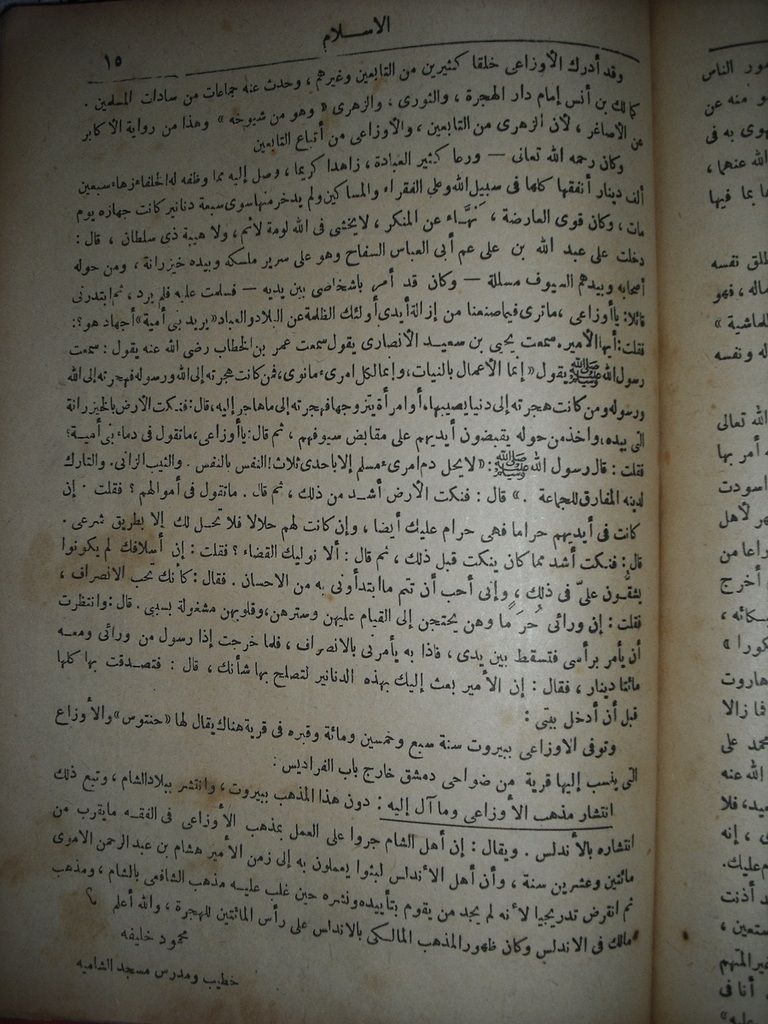 الاســـلام
١٥
وقد أدرك الأوزاعى خلقا كثيرين من التابعين وغيرهم ، وحدث عنه جماعات من سادات المسلمين .
كمالك بن أنس إمام دار الهجرة ، والثورى ، والزهرى « وهو من شيوخه » وهذا من رواية الأكابر
عن الأصاغر ، لأن الزهرى من التابعين ، والأوزاعى من أتباع التابعين
وكان رحمه الله تعالى — ورعا كثير العبادة ، زاهدا كريما ، وصل إليه مما وظفه له الخلفاء زهاء سبعين
ألف دينار أنفقها كلها فى سبيل الله وعلى الفقراء والمساكين ولم يدخر منها سوى سبعة دنانير كانت جهازه يوم
مات ، وكان قوى العارضة ، نهَّــاء عن المنكر ، لايخشى فى الله لومة لائم ، ولا هيبة ذى سلطان ، قال :
دخلت على عبد الله بن على عم أبى العباس السفاح وهو على سرير ملكه وبيده خيزرانة ، ومن حوله
أصحابه وبيدهم السيوف مسللة — وكان قد أمر باشخاصى بين يديه — فسلمت عليه فلم يرد ، ثم ابتدرنى
قائلا : ياأوزاعى ، ماترى فيما صنعنا من إزالة أيدى أولئك الظلمة عن البلاد والعباد « يريد بنى أمية » أجهاد هو ؟ :
فقلت : أيها الأمير . سمعت يحيى بن سعيد الأنصارى يقول سمعت عمر بن الخطاب رضى الله عنه يقول : سمعت
رسول الله ﷺ يقول « إنما الأعمال بالنيات ، وإنما لكل امرىء مانوى ، فمن كانت هجرته إلى الله ورسوله فهجرته إلى الله
ورسوله ومن كانت هجرته إلى دنيا يصيبها ، أو امرأة يتزوجها فهجرته إلى ماهاجر إليه ، قال : فنكت الأرض بالخيزرانة
التى بيده ، وأخذ من حوله يقبضون أيديهم على مقابض سيوفهم ، ثم قال : ياأوزاعى ، ماتقول فى دماء بنى أمية ؟
فقلت : قال رسول الله ﷺ : « لايحل دم امرىء مسلم إلا باحدى ثلاث ! النفس بالنفس . والثيب الزانى . والتارك
لدينه المفارق للجماعة . » قال : فنكت الأرض أشــد من ذلك ، ثم قال . ماتقول فى أموالهم ؟ فقلت . إن
كانت فى أيديهم حراما فهى حرام عليك أيضا ، وإن كانت لهم حلالا فلا تحــل لك إلا بطريق شرعى .
قال : فنكت أشد مما كان ينكت قبل ذلك ، ثم قال : ألا نوليك القضاء ؟ فقلت : إن أسلافك لم يكونوا
يشقُّــون علىّ فى ذلك ، وإنى أحب أن تتم ماابتدأونى به من الاحسان . فقال : كأنك تحب الانصراف ،
فقلت : إن ورائى حُرَمًا وهن يحتجن إلى القيام عليهن وسترهن ، وقلوبهن مشغولة بسببى . قال : وانتظرت
أن يأمر برأسى فتسقط بين يدى ، فاذا به يأمرنى بالانصراف ، فلما خرجت إذا رسول من ورائى ومعــه
مائتا دينار ، فقال : إن الأمير بعث إليك بهذه الدنانير لتصلح بها شأنك ، قال : فتصدقت بها كلها
قبل أن أدخل بيتى :
وتوفى الاوزاعى ببيروت سنة سبع وخمسين ومائة وقبره فى قرية هناك يقال لها « حنتوس » والأوزاع
التى ينسب إليها قرية من ضواحى دمشق خارج باب الفراديس :
انتشار مذهب الأوزاعى وما آل إليه : دون هذا المذهب ببيروت ، وانتشر ببلاد الشام ، وتبع ذلك
انتشاره بالأندلس . ويقال : إن أهل الشام جروا على العمل بمذهب الأوزاعى فى الفقــه مايقرب من
مائتين وعشرين سنة ، وأن أهل الأندلس لبثوا يعملون به إلى زمن الأمير هشام بن عبد الرحمن الاموى
ثم انقرض تدريجيا لأنه لم يجد من يقوم بتأييده ونشره حين غلب عليــه مذهب الشافعى بالشام ، ومذهب
مالك فى الاندلس وكان ظهور المذهب المالــكى بالاندلس على رأس المائتين للهجرة ، والله أعلم ؟
محمود خليفه
خطيب ومدرس مسجد الشاميه
ور الناس
و منه عن
هوى به فى
الله عنهما ،
ا بما فيها
طلق نفسه
ماله ، فهو
لماشية »
له ونفسه
الله تعالى
ه أمر بها
اسودت
هر لأهل
راعا من
أخرج
بكائه ،
كورا »
هاروت
فما زالا
محمد على
الله عنه
بيد ، فلا
ى ، إنه
م عليك .
د أذنت
ستعين ،
غير المتهم
أنا فى
عليه »